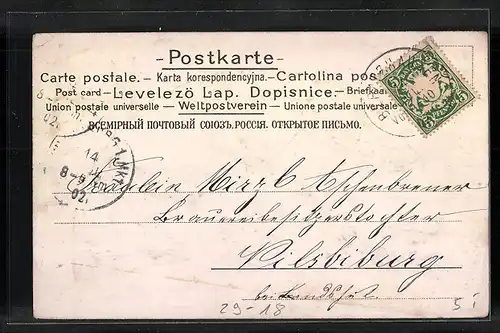 -Postkarte-
Carte postale. – Karta korespondencyjna. – Cartolina pos
Post card – Levelező Lap. Dopisnice. – Briefkaar
Union postale universelle – Weltpostverein – Unione postale universale
ВСЕМІРНЫЙ ПОЧТОВЫЙ СОЮЗЪ. РОССІЯ. ОТКРЫТОЕ ПИСЬМО.
14
8-9
02.
Fräulein Mirzl Aschenbrener
Brauereibesitzerstochter
Vilsbiburg
bei Landshut
29-18